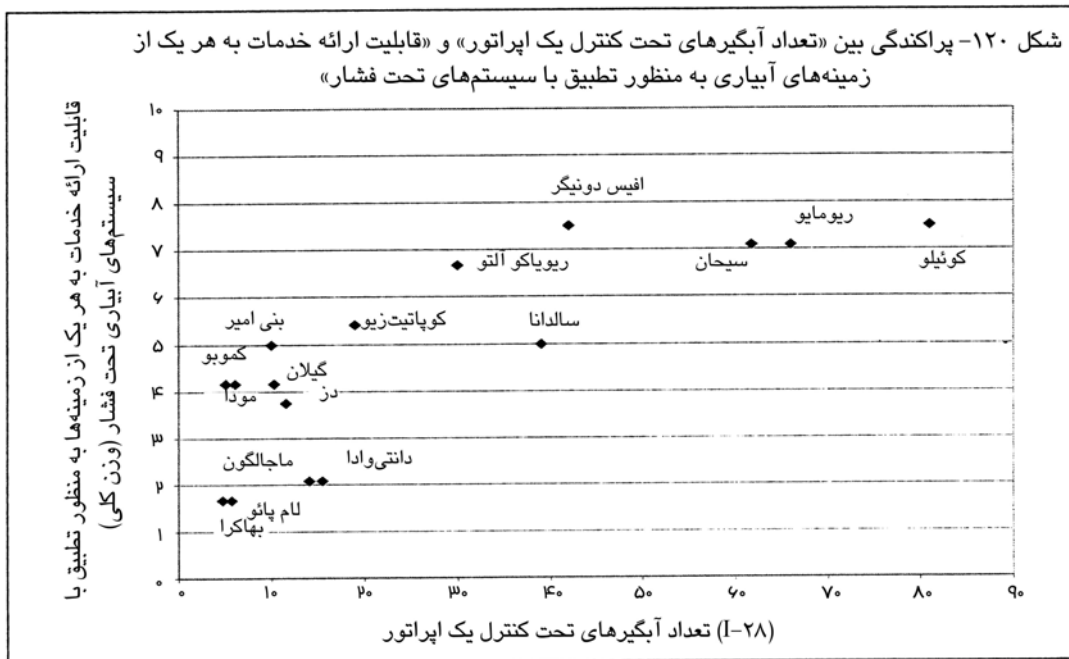 شکل ۱۲۰- پراکندگی بین «تعداد آبگیرهای تحت کنترل یک اپراتور» و «قابلیت ارائه خدمات به هر یک از
زمینه‌های آبیاری به منظور تطبیق با سیستم‌های تحت فشار»
قابلیت ارائه خدمات به هر یک از زمینه‌ها به منظور تطبیق با
سیستم‌های آبیاری تحت فشار (وزن کلی)
۱۰
۹
۸
۷
۶
۵
۴
۳
۲
۱
۰
افیس دونیگر
ریومایو
کوئیلو
سیحان
ریویاکو آلتو
سالدانا
کوپاتیت‌زیو
بنی امیر
کموبو
گیلان
مودا
دز
دانتی‌وادا
ماجالگون
لام پائو
بهاکرا
۰ ۱۰ ۲۰ ۳۰ ۴۰ ۵۰ ۶۰ ۷۰ ۸۰ ۹۰
(I-۲۸) تعداد آبگیرهای تحت کنترل یک اپراتور